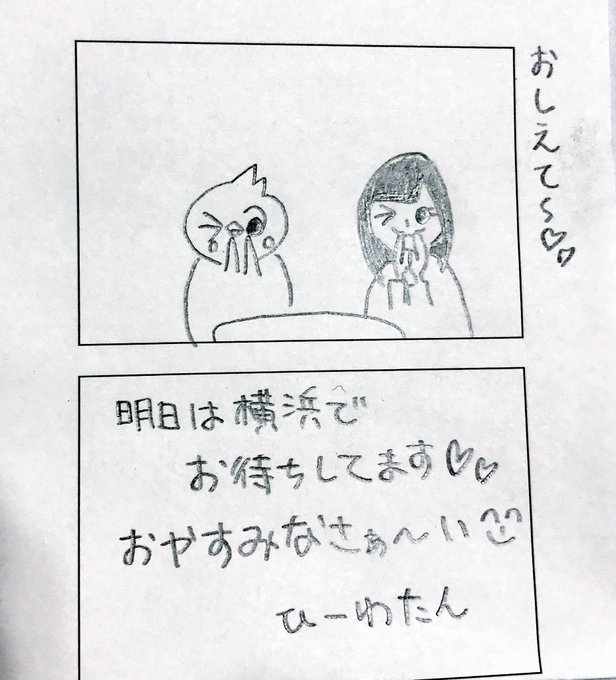 おしえて〜♡♡
明日は横浜で
お待ちしてます♡♡
おやすみなさぁ〜い
ひーわたん